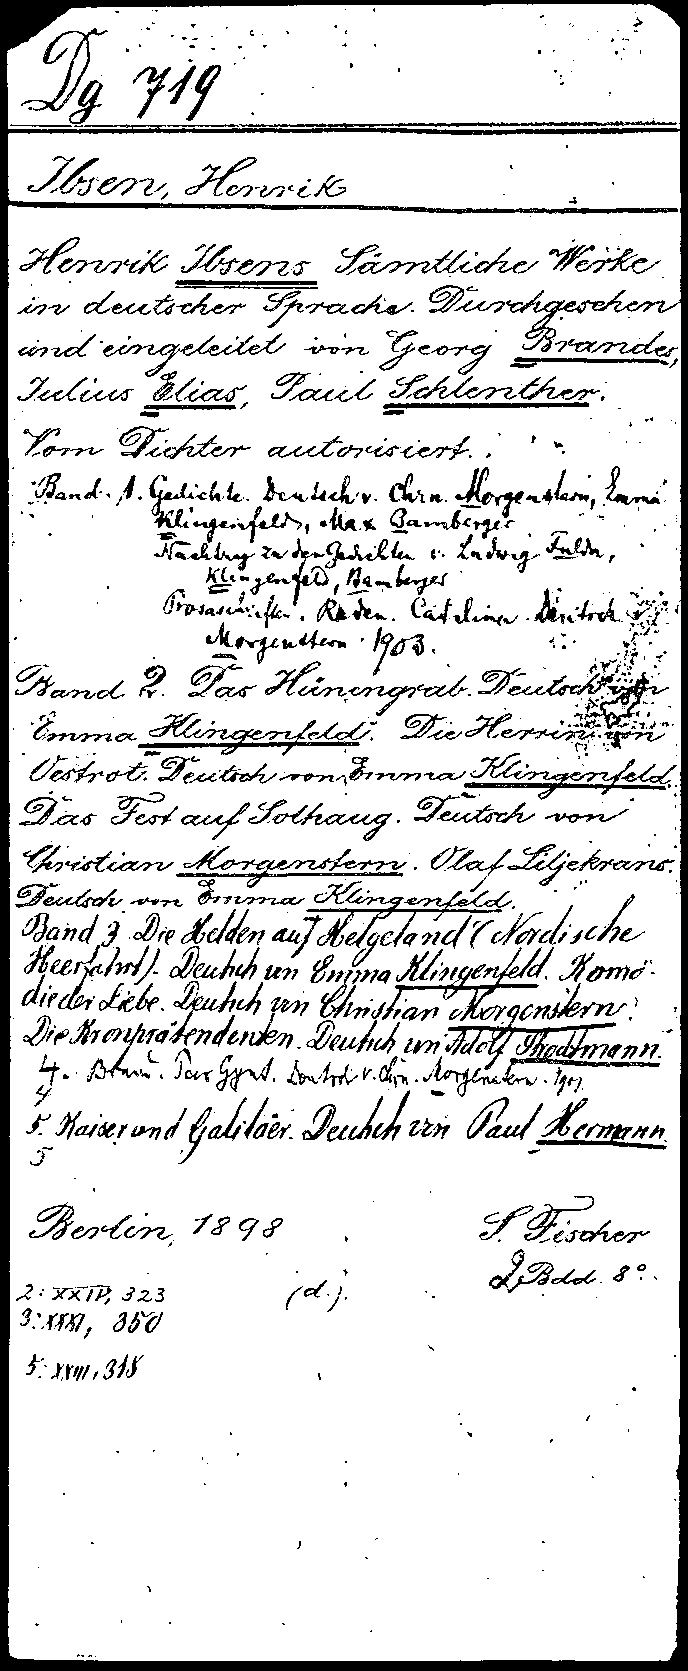 Dg 719
Ibsen, Henrik
Henrik Ibsens Sämtliche Werke
in deutscher Sprache. Durchgesehen
und eingeleitet von Georg Brandes,
Julius Elias, Paul Schlenther.
Vom Dichter autorisiert.
Band. 1. Gedichte. Deutsch v. Chrn. Morgenstern, Emma
Klingenfeld, Max Bamberger
Nachtrag zu den Gedichten v. Ludwig Fulda,
Klingenfeld, Bamberger
Prosaschriften. Reden. Catilina. Deutsch v.
Morgenstern 1903.
Band 2. Das Hünengrab. Deutsch von
Emma Klingenfeld. Die Herrin von
Oestrot. Deutsch von Emma Klingenfeld.
Das Fest auf Solhaug. Deutsch von
Christian Morgenstern. Olaf Liljekrans.
Deutsch von Emma Klingenfeld.
Band 3. Die Helden auf Helgeland (Nordische
Heerfahrt). Deutsch von Emma Klingenfeld. Komö-
die der Liebe. Deutsch von Christian Morgenstern.
Die Kronprätendenten. Deutsch von Adolf Strodtmann.
4. Brand. Peer Gynt. Deutsch v. Chrn. Morgenstern. 1901.
4
5. Kaiser und Galiläer. Deutsch von Paul Hermann.
5
Berlin, 1898 S. Fischer
2 Bdd. 8°.
2: XXIV, 323 (d.).
3: XXXI, 350
5: XXIII, 318